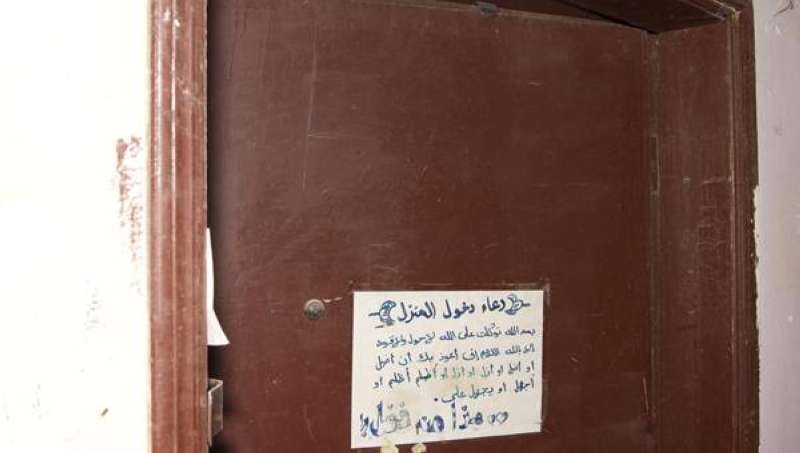 دعاء دخول المنزل
بسم الله توكلت على الله لا حول ولا قوة
الا بالله اللهم اني اعوذ بك ان اضل
او اضل او أزل او ازل او أظلم أظلم او
أجهل او يجهل علي.
هذا من فضل